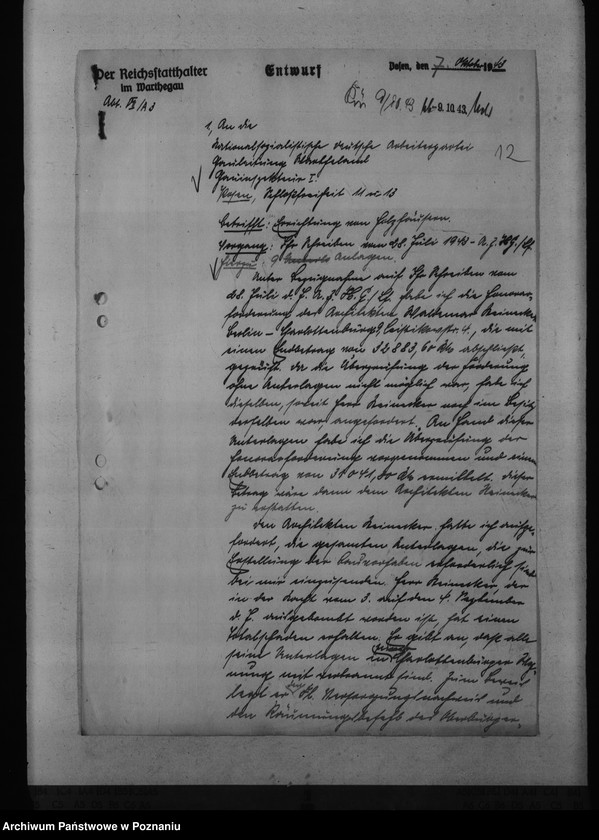 Der Reichsstatthalter
im Warthegau
Abt. VI/A3
Entwurf
Posen, den 7. Oktober 1943
9.10.43
12
1, An die
Nationalsozialistische Deutsche Arbeiterpartei
Gauleitung Wartheland
Gauinspekteur I.
Posen, Schloßfreiheit 11 u. 13
Betrifft: Errichtung von Holzhäusern.
Vorgang: Ihr Schreiben vom 28. Juli 1943 - A.Z.
Anlagen.
Unter Bezugnahme auf Ihr Schreiben vom
28. Juli d. J. A.Z. habe ich die Honorar-
forderung des Architekten Waldemar Reinecker
Berlin - Charlottenburg 9, 4., die mit
einem Endbetrag von 32 883,60 RM abschließt,
geprüft. Da die Überprüfung der Forderung
ohne Unterlagen nicht möglich war, habe ich
dieselben, soweit Herr Reinecker noch im Besitz
derselben war, angefordert. An Hand dieser
Unterlagen habe ich die Überprüfung der
Honorarforderung vorgenommen und einen
Endbetrag von 31 041,00 RM ermittelt. Dieser
Betrag wäre dann dem Architekten Reinecker
zu erstatten.
Den Architekten Reinecker hatte ich aufge-
fordert, die gesamten Unterlagen, die zur
Erstellung der Bauvorhaben erforderlich sind
bei mir einzusenden. Herr Reinecker, der
in der Nacht vom 3. auf den 4. September
d. J. ausgebombt worden ist, hat einen
Totalschaden erhalten. Er gibt an, daß alle
seine Unterlagen in seiner Charlottenburger Woh-
nung mit verbrannt sind. Zum Beweis
legt er den Versorgungsnachweis und
den Räumungsbefehl des Oberbürger-
Archiwum Państwowe w Poznaniu